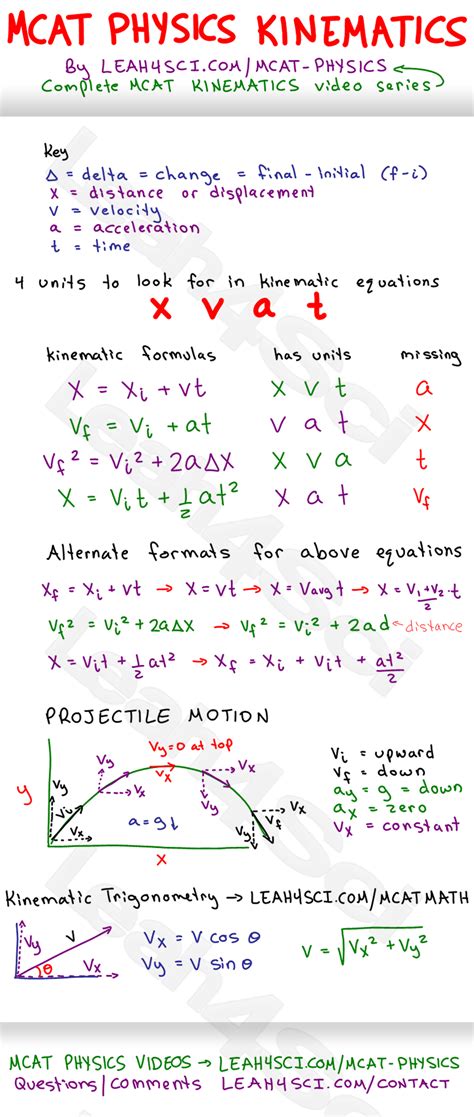 MCAT PHYSICS KINEMATICS
By LEAH4SCI.COM/MCAT-PHYSICS
Complete MCAT KINEMATICS video series
Key
Δ = delta = change = final - Initial (f-i)
x = distance or displacement
v = velocity
a = acceleration
t = time
4 units to look for in kinematic equations
x v a t
kinematic formulas has units missing
X = Xᵢ + vt x v t a
Vf = Vᵢ + at v a t x
Vf² = Vᵢ² + 2aΔX x v a t
X = Vᵢt + ½at² x a t Vf
Alternate formats for above equations
Xf = Xᵢ + vt → X = vt → X = Vavg t → X = V₁+V₂/2 · t
Vf² = Vᵢ² + 2aΔX → Vf² = Vᵢ² + 2ad ← distance
X = Vᵢt + ½at² → Xf = Xᵢ + Vᵢt + at²/2
PROJECTILE MOTION
Vy=0 at top
Vx
Vy
Vx
Vy
Vy
Vᵢ
Vx
y
x
a=g↓
Vx
Vf
Vy
Vᵢ = upward
Vf = down
ay = g = down
ax = zero
Vx = constant
Kinematic Trigonometry → LEAH4SCI.COM/MCATMATH
Vy
V
Vx
θ
Vx = V cos θ
Vy = V sin θ
V = √Vx² + Vy²
MCAT PHYSICS VIDEOS → LEAH4SCI.COM/MCAT-PHYSICS
Questions|Comments LEAH4SCI.COM/CONTACT
Leah4Sci
Leah4Sci
Leah4Sci
Leah4Sci